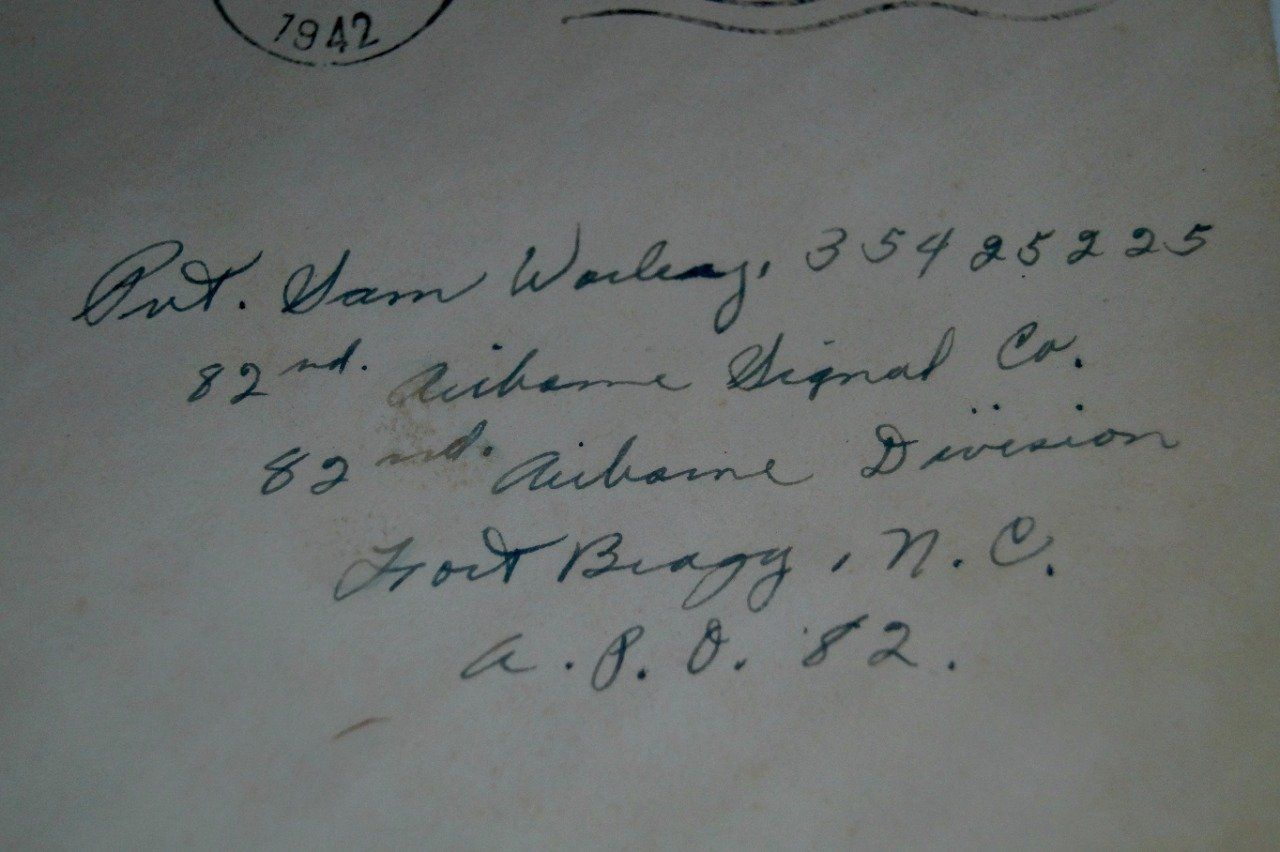 1942
Pvt. Sam Worley, 35425225
82nd. Airborne Signal Co.
82nd. Airborne Division
Fort Bragg, N. C.
A. P. O. 82.